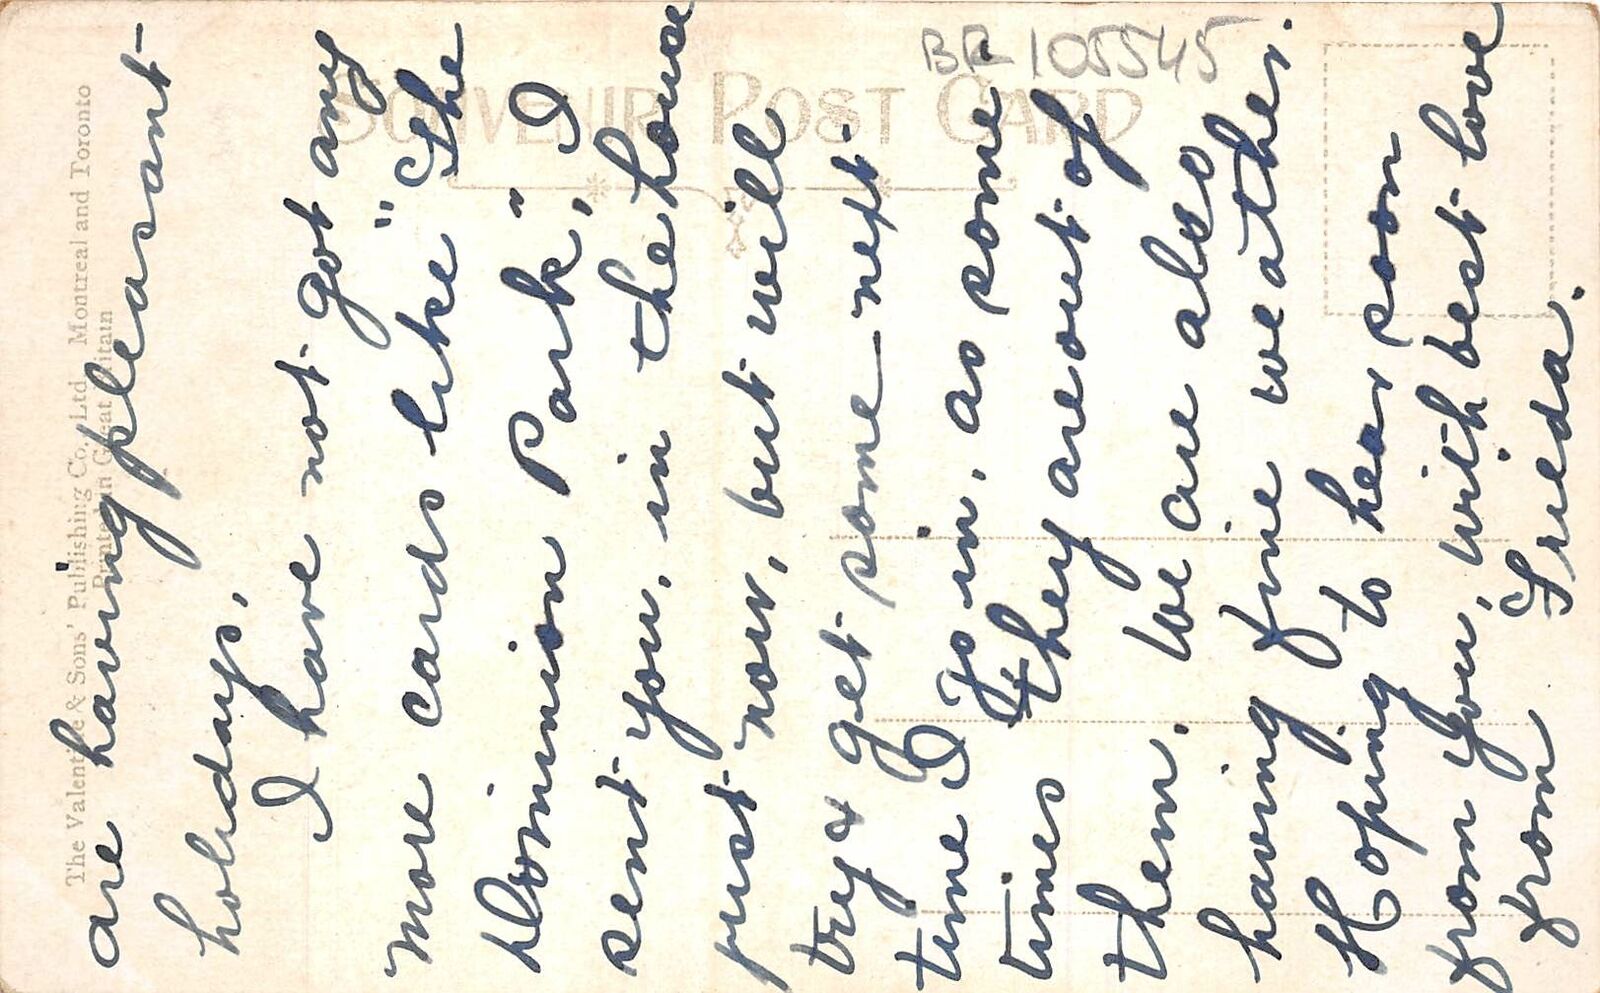 BR 105545
SOUVENIR POST CARD
The Valentine & Sons' Publishing Co., Ltd. Montreal and Toronto
Printed in Great Britain
are having pleasant
holidays,
I have not got any
more cards like "The
Dominion Park", I
sent you, in the house
just now, but will
try & get some next
time I go in, as some
times they are out of
them. We are also
having fine weather.
Hoping to hear soon
from you, with best love
from Frieda.